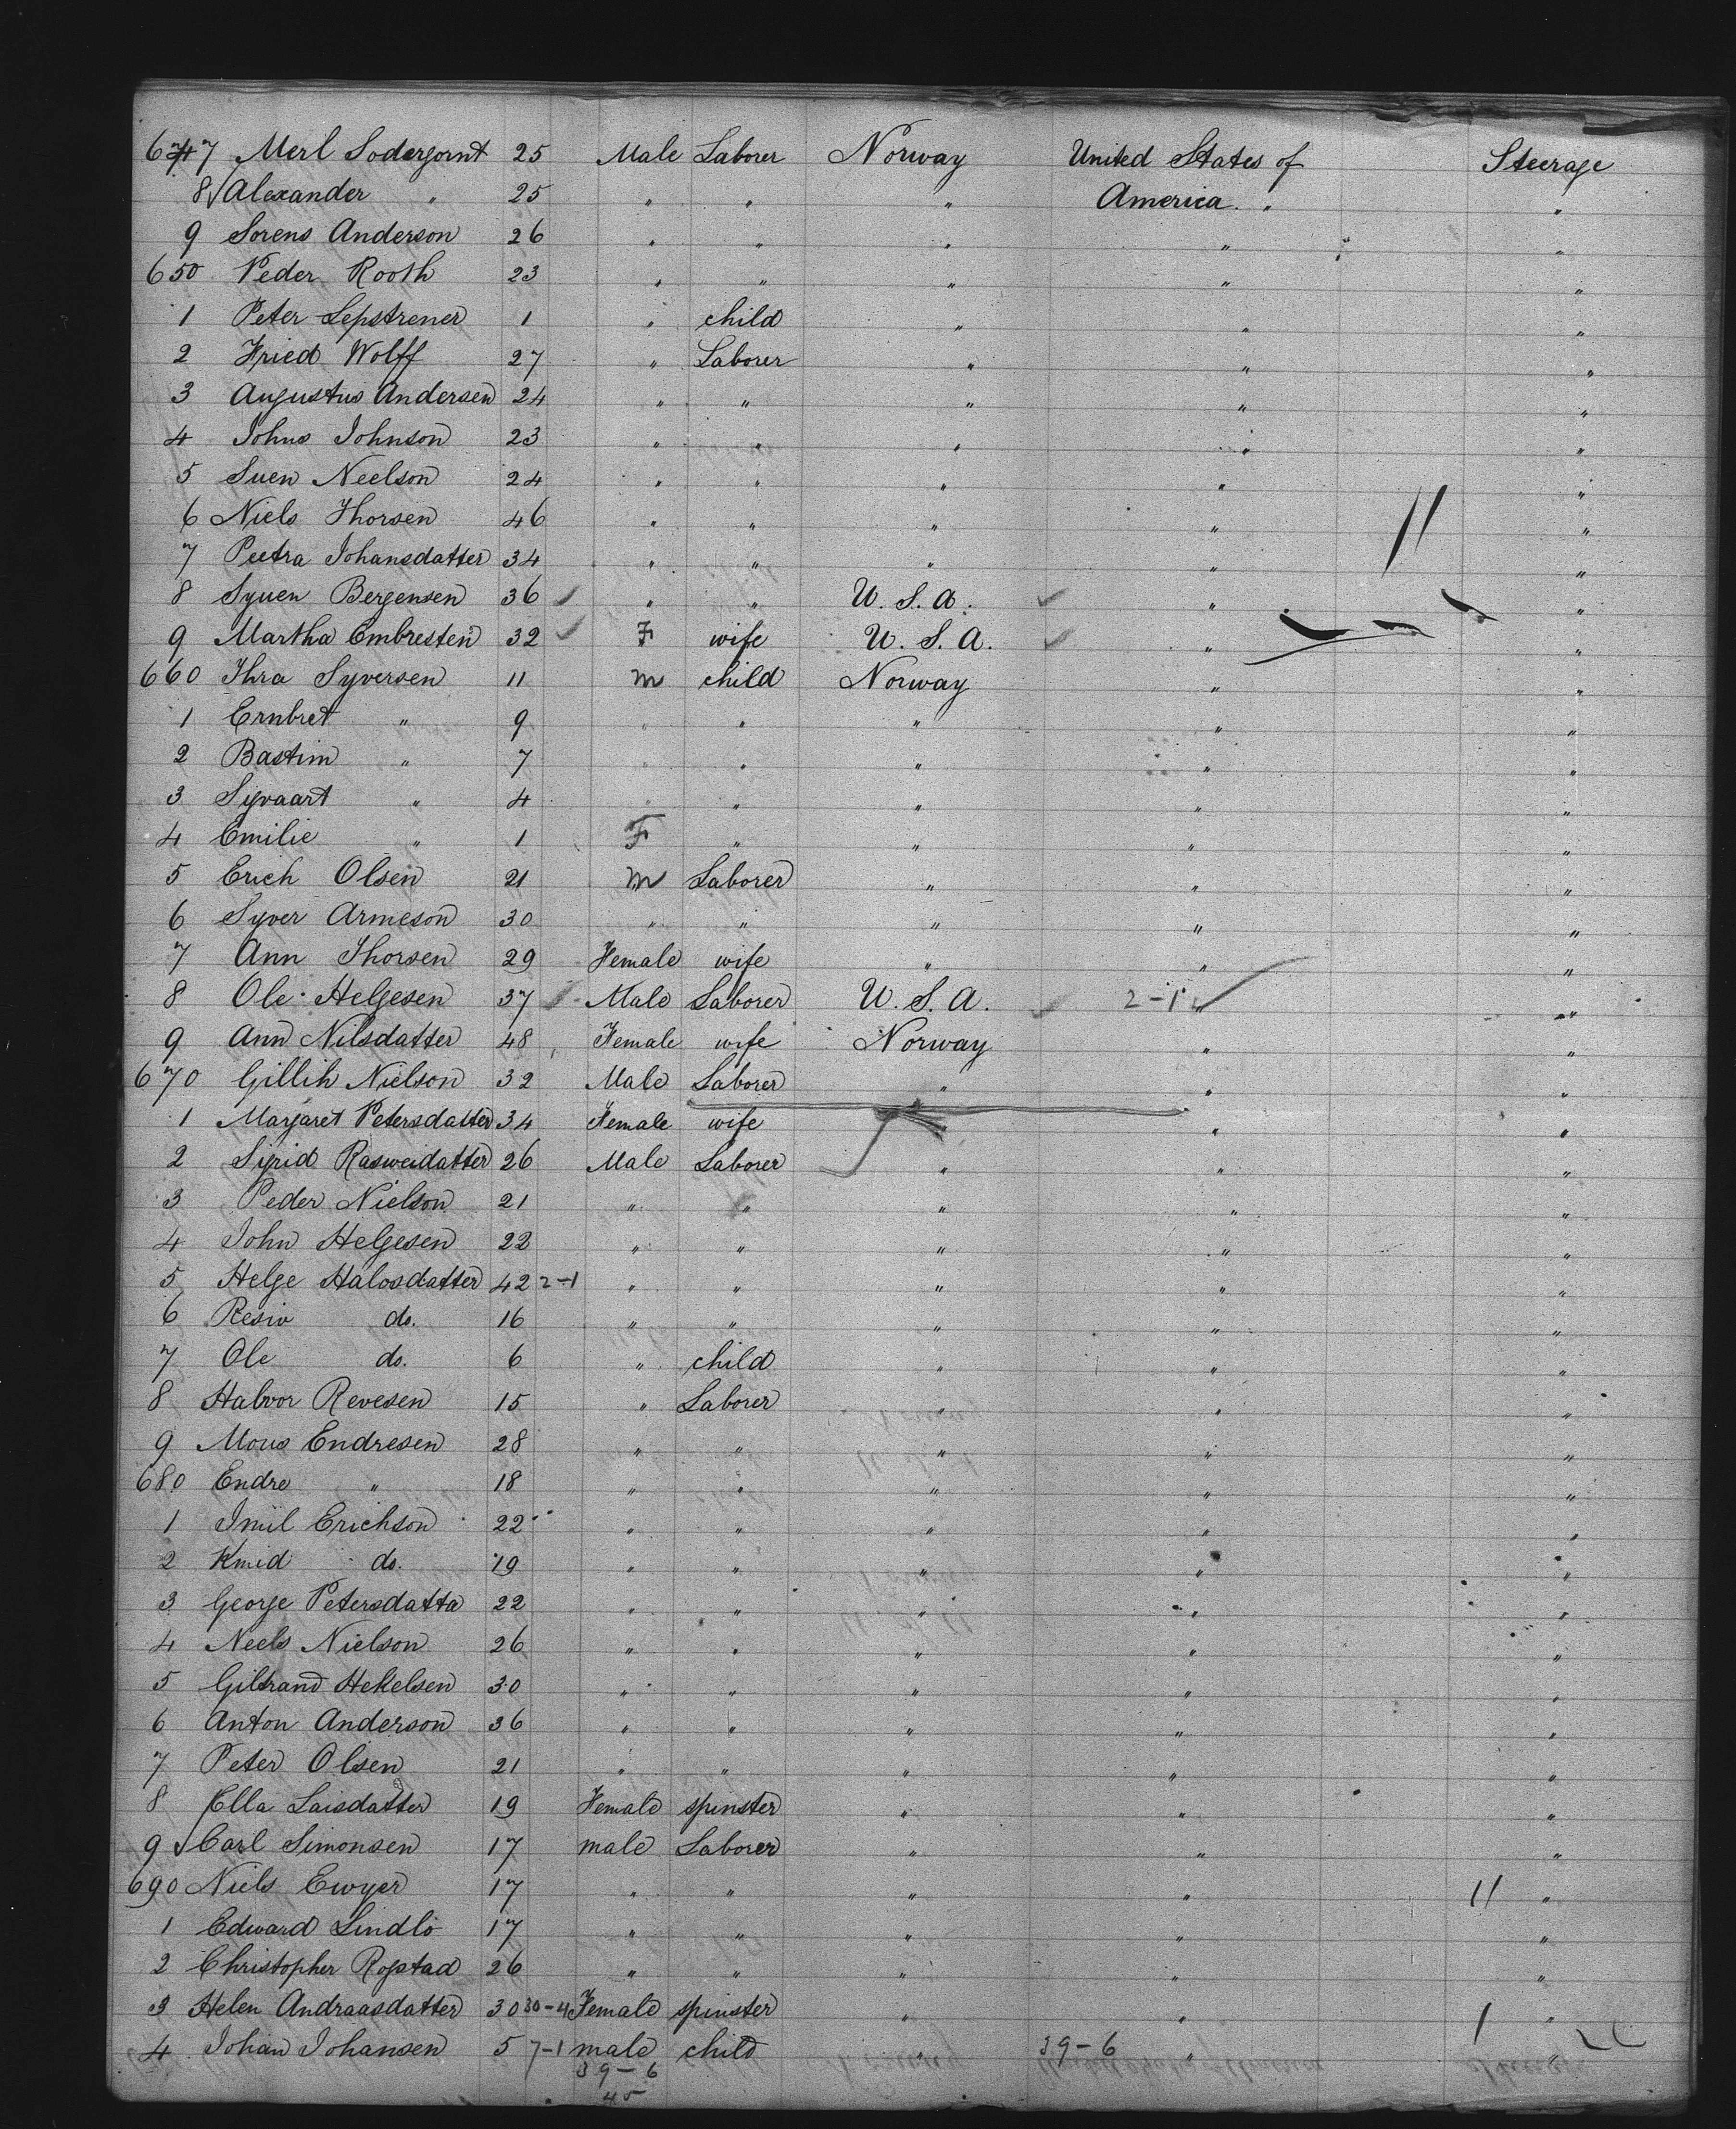 647 Merl Sodergornt 25 Male Laborer Norway United States of Steerage
8 Alexander " 25 " " " America. " "
9 Sorens Anderson 26 " " " " "
650 Peder Rooth 23 " " " " "
1 Peter Lepstrener 1 " child " " "
2 Fried Wolff 27 " Laborer " " "
3 Augustus Andersen 24 " " " " "
4 Johns Johnson 23 " " " " "
5 Suen Neelson 24 " " " " "
6 Niels Thorsen 46 " " " " "
7 Peetra Johansdatter 34 " " " " "
8 Syuen Bergensen 36 " " U.S.A. " "
9 Martha Embresten 32 F wife U.S.A. " "
660 Thra Syversen 11 m child Norway " "
1 Ernbret " 9 " " " " "
2 Bastim " 7 " " " " "
3 Syvaart " 4 " " " " "
4 Emilie " 1 F " " " "
5 Erich Olsen 21 m Laborer " " "
6 Syver Armeson 30 " " " " "
7 Ann Thorsen 29 Female wife " " "
8 Ole Helgesen 37 Male Laborer U.S.A. 2-1 " "
9 Ann Nilsdatter 48 Female wife Norway " "
670 Gillih Nielson 32 Male Laborer " " "
1 Margaret Petersdatter 34 Female wife " " "
2 Sigrid Rasweidatter 26 Male Laborer " " "
3 Peder Nielson 21 " " " " "
4 John Helgesen 22 " " " " "
5 Helge Halosdatter 42 2-1 " " " " "
6 Resiv do. 16 " " " " "
7 Ole do. 6 " child " " "
8 Halvor Revesen 15 " Laborer " " "
9 Mous Endresen 28 " " " " "
680 Endre " 18 " " " " "
1 Imil Erichson 22 " " " " "
2 Kmid do. 19 " " " " "
3 George Petersdatta 22 " " " " "
4 Neels Nielson 26 " " " " "
5 Gilbrand Hekelsen 30 " " " " "
6 Anton Anderson 36 " " " " "
7 Peter Olsen 21 " " " " "
8 Ella Laisdatter 19 Female spinster " " "
9 Carl Simonsen 17 male Laborer " " "
690 Niels Ewyer 17 " " " " "
1 Edward Lindlö 17 " " " " "
2 Christopher Rogstad 26 " " " " "
3 Helen Andraasdatter 30 30-4 Female spinster " " "
4 Johan Johansen 5 7-1 male child " 39-6 " "
39-6
45